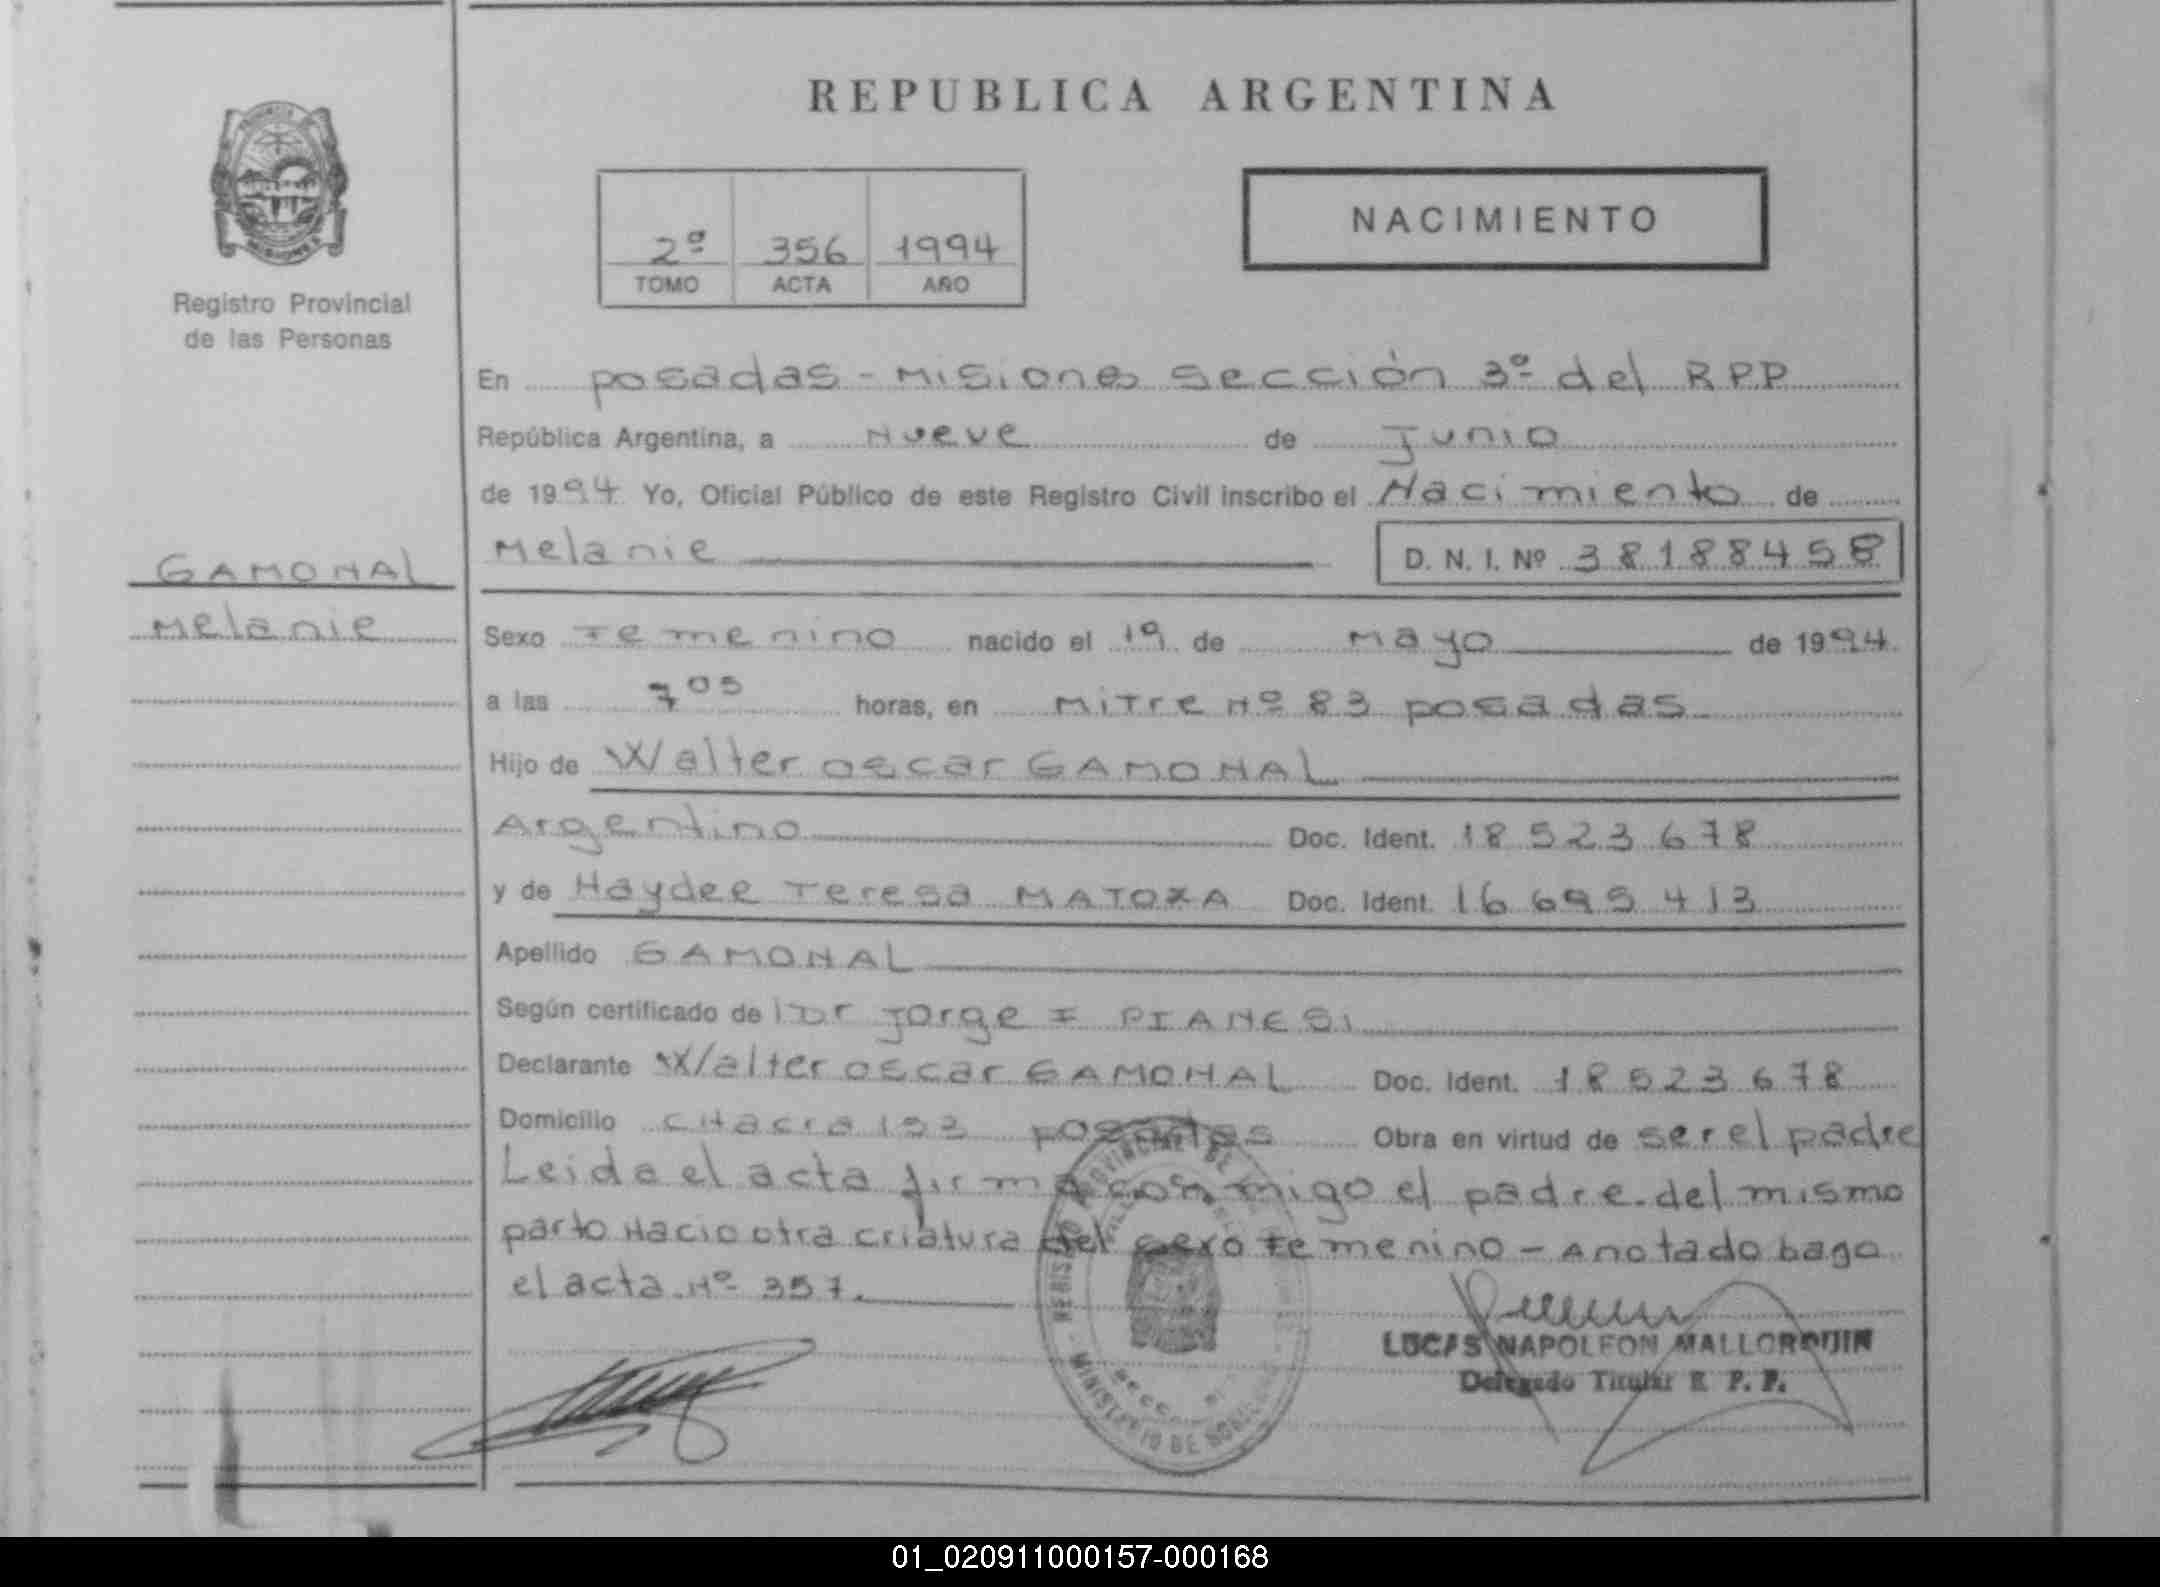 REPUBLICA ARGENTINA
Registro Provincial
de las Personas
2º 356 1994
TOMO ACTA AÑO
NACIMIENTO
En posadas - Misiones sección 3º del RPP
República Argentina, a Nueve de Junio
de 1994 Yo, Oficial Público de este Registro Civil inscribo el Nacimiento de
Melanie D. N. I. Nº 38188458
GAMONAL
Melanie
Sexo Femenino nacido el 19 de Mayo de 1994
a las 7 05 horas, en Mitre Nº 83 posadas
Hijo de Walter oscar GAMONAL
Argentino Doc. Ident. 18523678
y de Haydee Teresa MATOXA Doc. Ident. 16695413
Apellido GAMONAL
Según certificado de Dr Jorge I PIANESI
Declarante Walter oscar GAMONAL Doc. Ident. 18523678
Domicilio CHacra 153 posadas Obra en virtud de ser el padre
Leida el acta firma conmigo el padre. del mismo
parto Nacio otra criatura del sexo Femenino - Anotado bago
el acta Nº 357.
LUCAS NAPOLEON MALLORQUIN
Delegado Titular R. P. P.
MINISTERIO DE
01_020911000157-000168